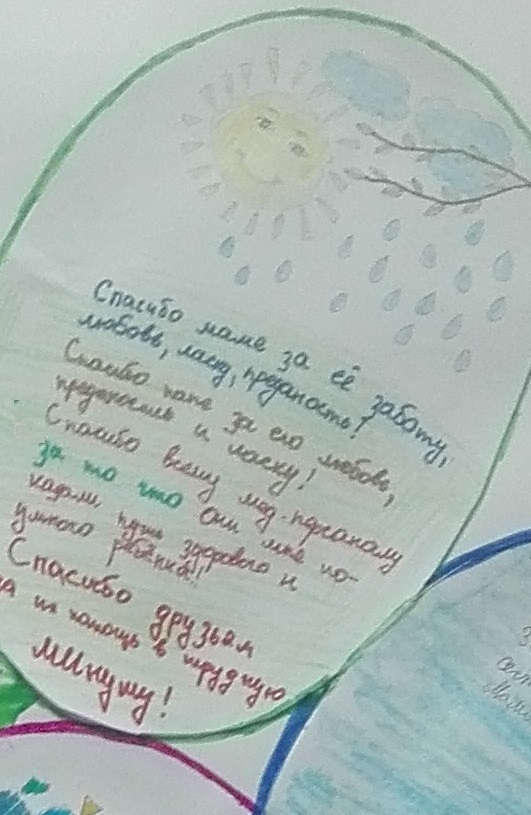 Спасибо маме за её заботу,
любовь, ласку, преданость!
Спасибо папе за его любовь,
преданость и ласку!
Спасибо всему мед-персоналу
за то что они мне по-
казали, здорового и
умного ребёнка!!
Спасибо друзьям
за их помощь в трудную
минуту!